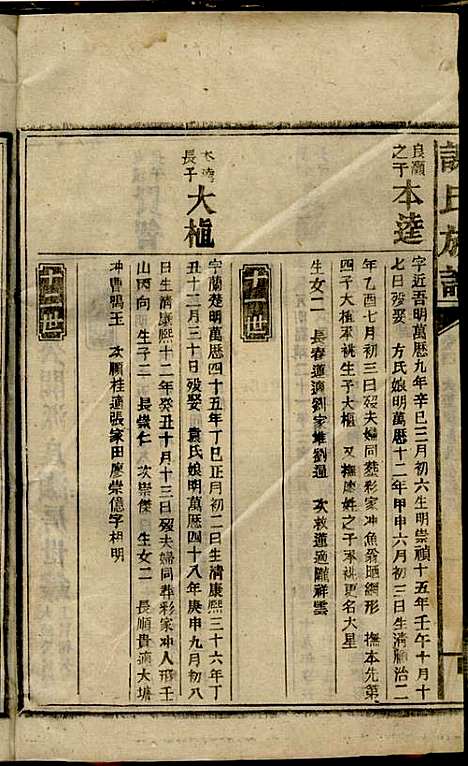 譚氏族譜
良灝之子 本逹
字近吾明萬曆九年辛巳三月初六生明崇禎十五年壬午十月十
七日歿娶 方氏娘明萬曆十二年甲申六月初三日生清順治二
年乙酉七月初三日歿夫婦同葬彩家冲魚翁晒網形 撫本先第
四子大植承祧生子大樞 又撫廖姓之子承祧更名大星
生女二 長春蓮適劉家堆劉過 次救蓮適龍祥雲
十二世
本灣長子 大植
字蘭楚明萬曆四十五年丁巳正月初二日生清康熙三十六年丁
丑十二月三十日歿娶 袁氏娘明萬曆四十八年庚申九月初八
日生清康熙十二年癸丑十月十三日歿夫婦同葬彩家冲人形壬
山丙向 生子二 長崇仁 次崇傑 生女二 長順貴適大塘
冲曹鴨王 次順桂適張家田廖崇億字相明
十三世